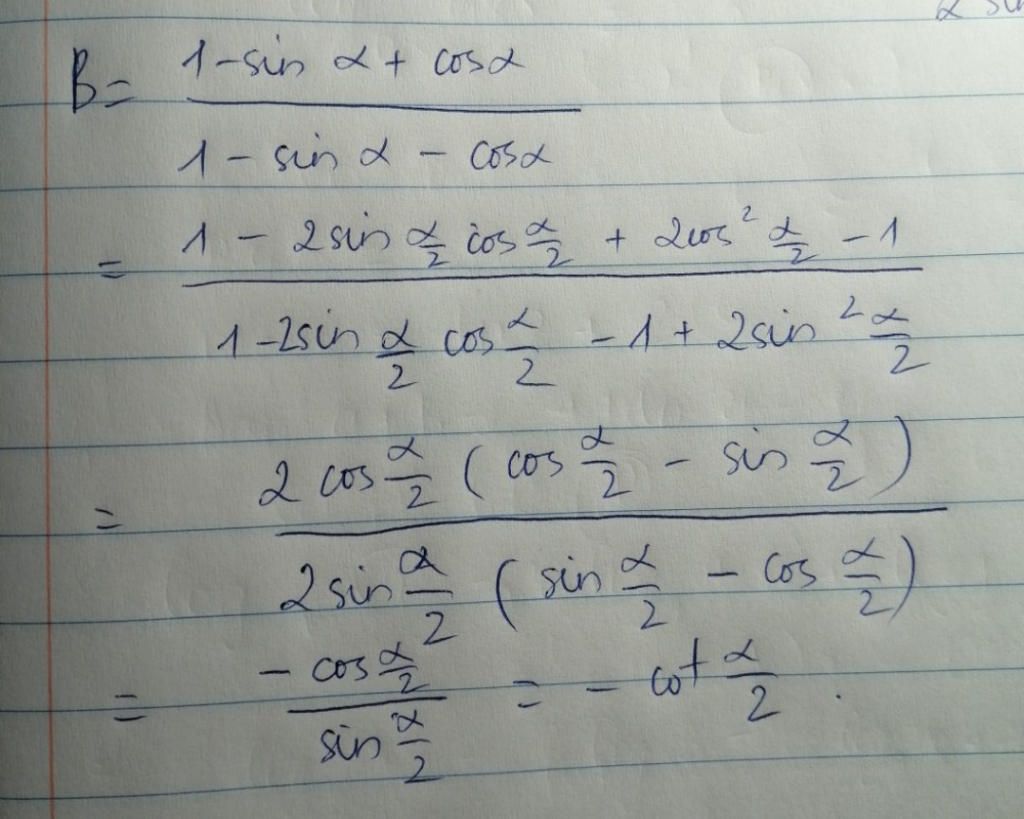 2 sin
B = \frac{1 - \sin α + \cos α}{1 - \sin α - \cos α}
= \frac{1 - 2 \sin \frac{α}{2} \cos \frac{α}{2} + 2 \cos^2 \frac{α}{2} - 1}{1 - 2 \sin \frac{α}{2} \cos \frac{α}{2} - 1 + 2 \sin^2 \frac{α}{2}}
= \frac{2 \cos \frac{α}{2} ( \cos \frac{α}{2} - \sin \frac{α}{2} )}{2 \sin \frac{α}{2} ( \sin \frac{α}{2} - \cos \frac{α}{2} )}
= \frac{- \cos \frac{α}{2}}{\sin \frac{α}{2}} = - \cot \frac{α}{2} .